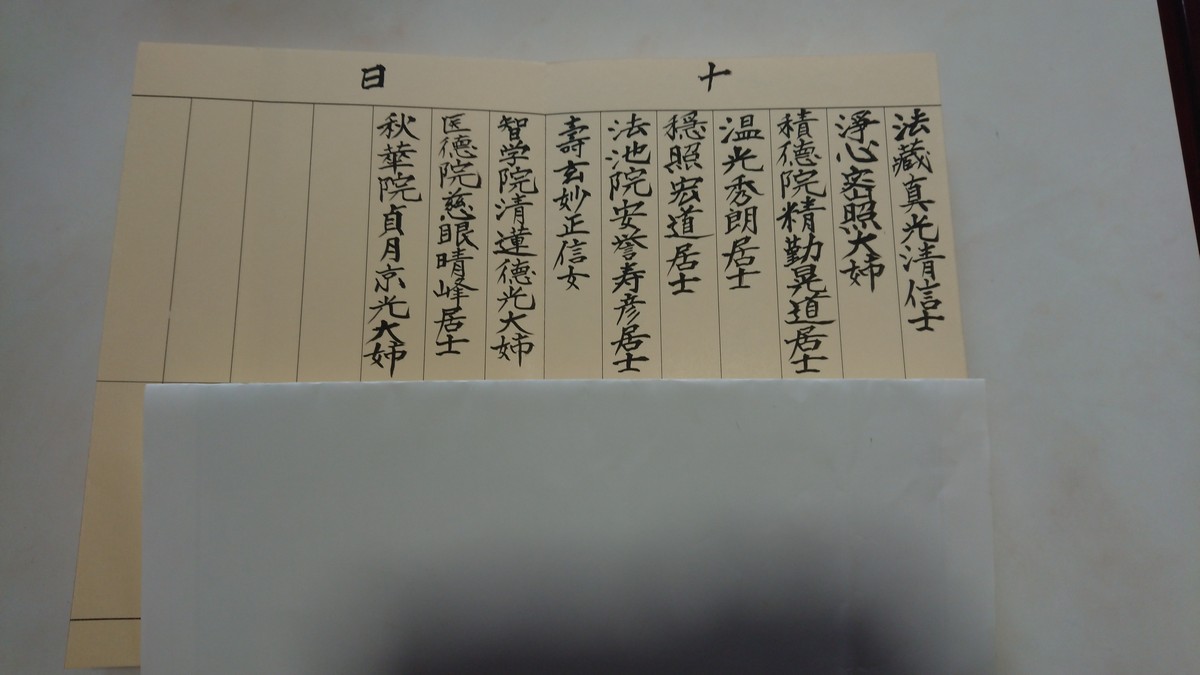 十日
法藏真光清信士
淨心密照大姉
積徳院精勤晃道居士
温光秀朗居士
穏照宏道居士
法池院安誉寿彦居士
壽玄妙正信女
智学院清蓮徳光大姉
医徳院慈眼晴峰居士
秋華院貞月京光大姉